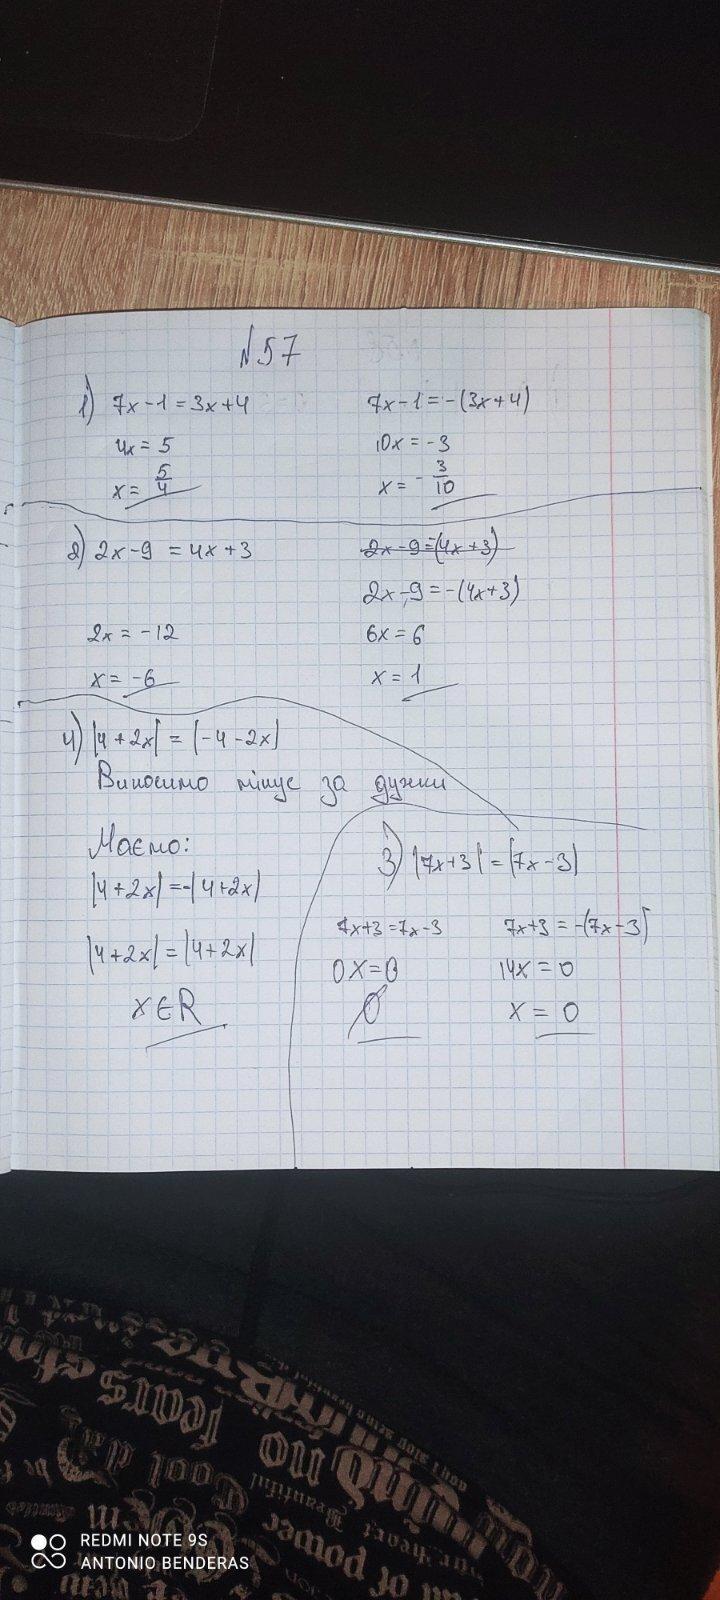 N57
1) 7x-1=3x+4
4x=5
x=5/4
7x-1=-(3x+4)
10x=-3
x=-3/10
2) 2x-9=4x+3
2x=-12
x=-6
2x-9=(4x+3)
2x-9=-(4x+3)
6x=6
x=1
4) |4+2x|=|-4-2x|
Виносимо мінус за дужки
Маємо:
|4+2x|=-|4+2x|
|4+2x|=|4+2x|
x∈R
3) |7x+3|=|7x-3|
7x+3=7x-3
0x=0
∅
7x+3=-(7x-3)
14x=0
x=0
fears
Cool
Beautiful
or power
REDMI NOTE 9S
ANTONIO BENDERAS